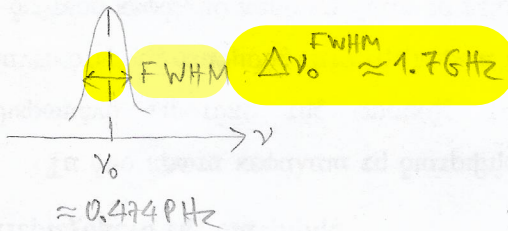 FWHM
Δν₀ FWHM ≈ 1.7GHz
ν
ν₀
≈ 0.474 PHz